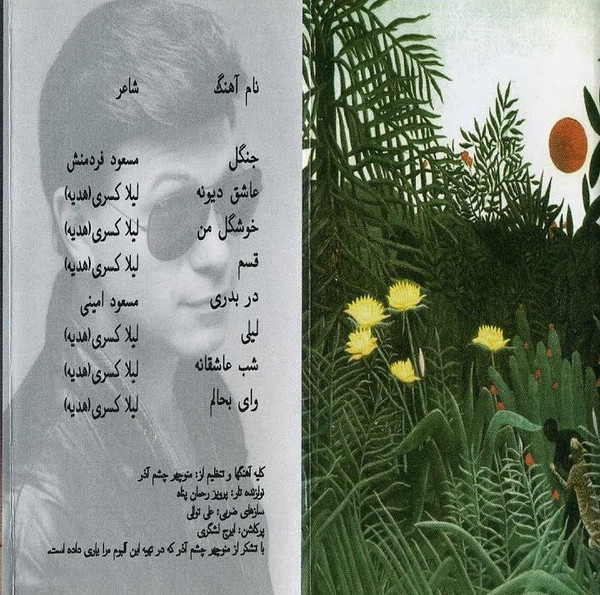 نام آهنگ شاعر
جنگل مسعود فردمنش
عاشق دیونه لیلا کسری(هدیه)
خوشگل من لیلا کسری(هدیه)
قسم لیلا کسری(هدیه)
در بدری مسعود امینی
لیلی لیلا کسری(هدیه)
شب عاشقانه لیلا کسری(هدیه)
وای بحالم لیلا کسری(هدیه)
کلیه آهنگها و تنظیم از: منوچهر چشم آذر
نوازنده تار: پرویز رحمان پناه
سازهای ضربی: علی توالی
پرکاشن: ایرج لشگری
با تشکر از منوچهر چشم آذر که در تهیه این آلبوم مرا یاری داده است.